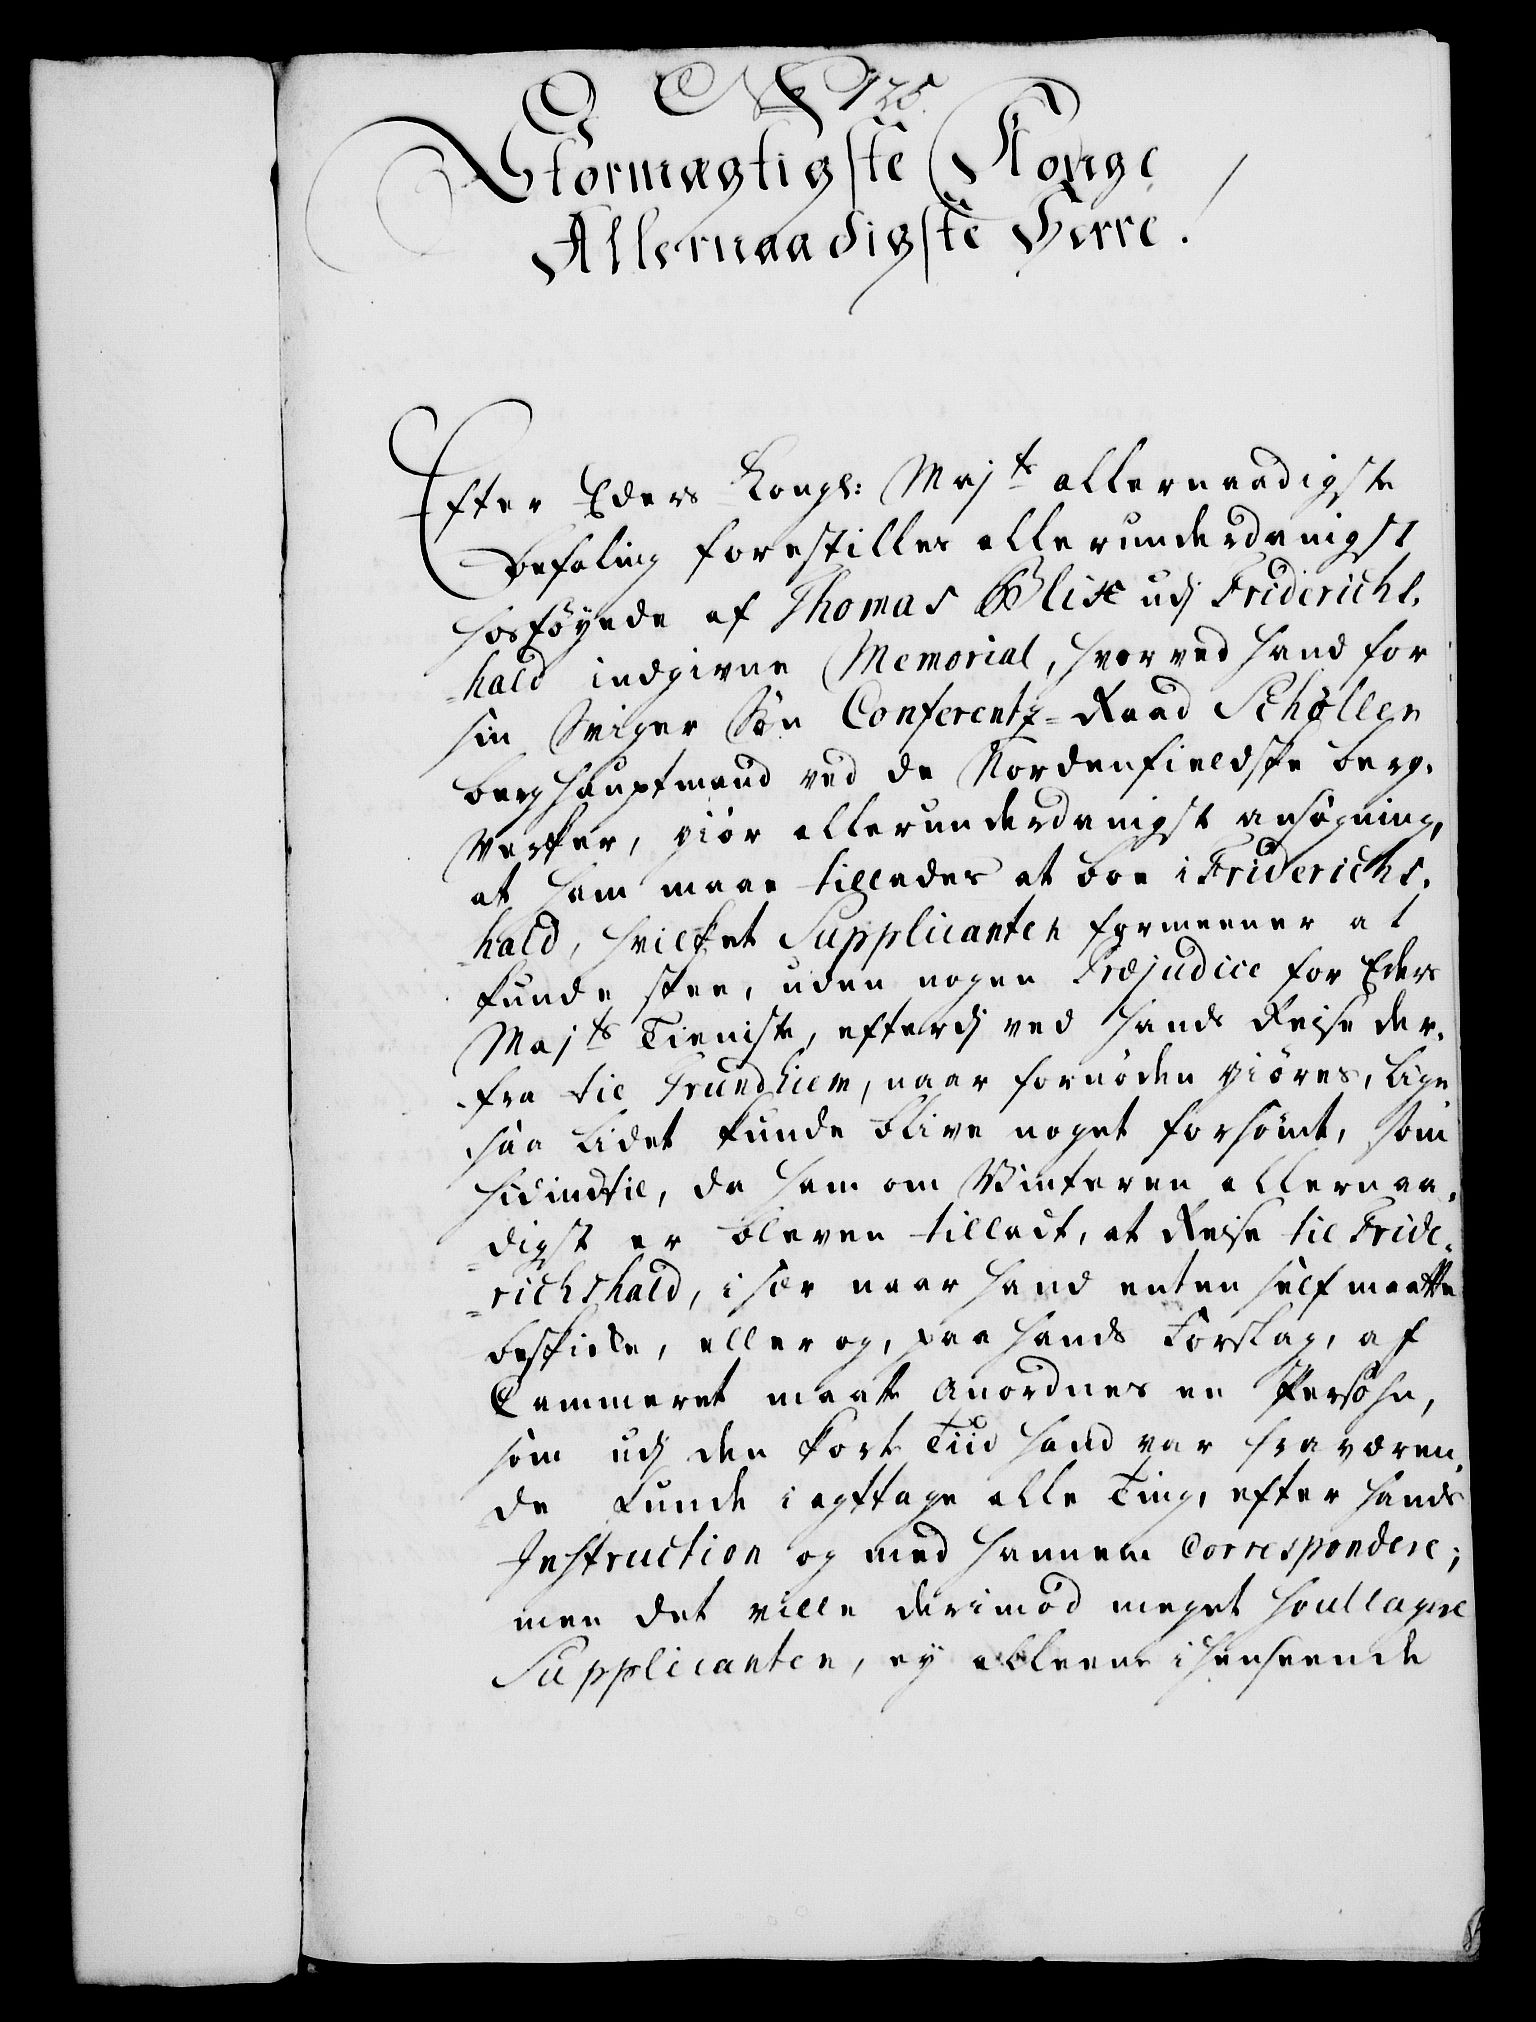 No 125.
Stormægtigste Konge
Allernaadigste Herre!
Efter Eders Kongl: Majts allernaadigste
befaling forestilles allerunderdanigst
hosföyede af Thomas Blix udj Friderichs-
hald indgivne Memorial, hvorved hand for
sin Sviger Sön Conferentz-Raad Schøller
berghauptmand ved de Nordenfieldske berg-
verker, giör allerunderdanigst ansögning,
at ham maae tillades at boe i Friderichs-
hald, hvilket Supplicanten formeener at
kunde skee, uden nogen Præjudice for Eders
Majts Tieniste, efterdj ved hands Reise der-
fra til Trundhiem, naar fornöden giöres, lige
saa lidet kunde blive noget forsömt, som
hidindtil, da ham om Vinteren allernaa-
digst er bleven tilladt, at Reise til Fride-
richshald, i sær naar hand enten self maatte
beskikke, eller og, paa hands Forslag, af
Cammeret maatte anordnes en Persohn,
som udj den korte Tiid hand var fraværen-
de kunde i agttage alle Ting, efter hands
Instruction og med hannem Correspondere;
men det ville derimod meget soullagere
Supplicanten, ey alleene i henseende